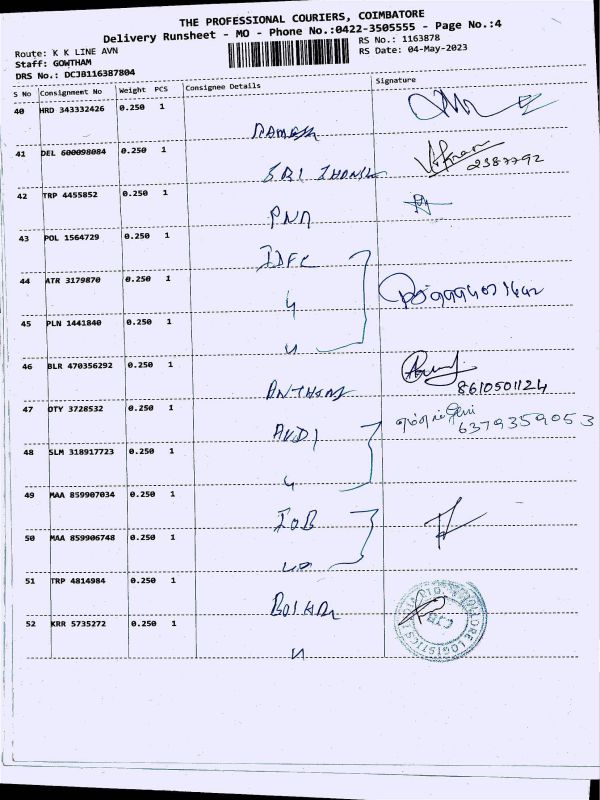 THE PROFESSIONAL COURIERS, COIMBATORE
Delivery Runsheet - MO - Phone No.:0422-3505555 - Page No.:4
Route: K K LINE AVN
Staff: GOWTHAM
DRS No.: DCJB116387804
RS No.: 1163878
RS Date: 04-May-2023
S No Consignment No Weight PCS Consignee Details Signature
40 HRD 343332426 0.250 1 RAMESH
41 DEL 600098084 0.250 1 SRI 2387792
42 TRP 4455852 0.250 1 PNA
43 POL 1564729 0.250 1 IDFC
44 ATR 3179870 0.250 1 4 9994071642
45 PLN 1441840 0.250 1 4
46 BLR 470356292 0.250 1 ANTHONY 8610501124
47 OTY 3728532 0.250 1 AUDI 6379359053
48 SLM 318917723 0.250 1 4
49 MAA 859907034 0.250 1 IOB
50 MAA 859906748 0.250 1
51 TRP 4814984 0.250 1
52 KRR 5735272 0.250 1 4
LOGISTICS
CJB